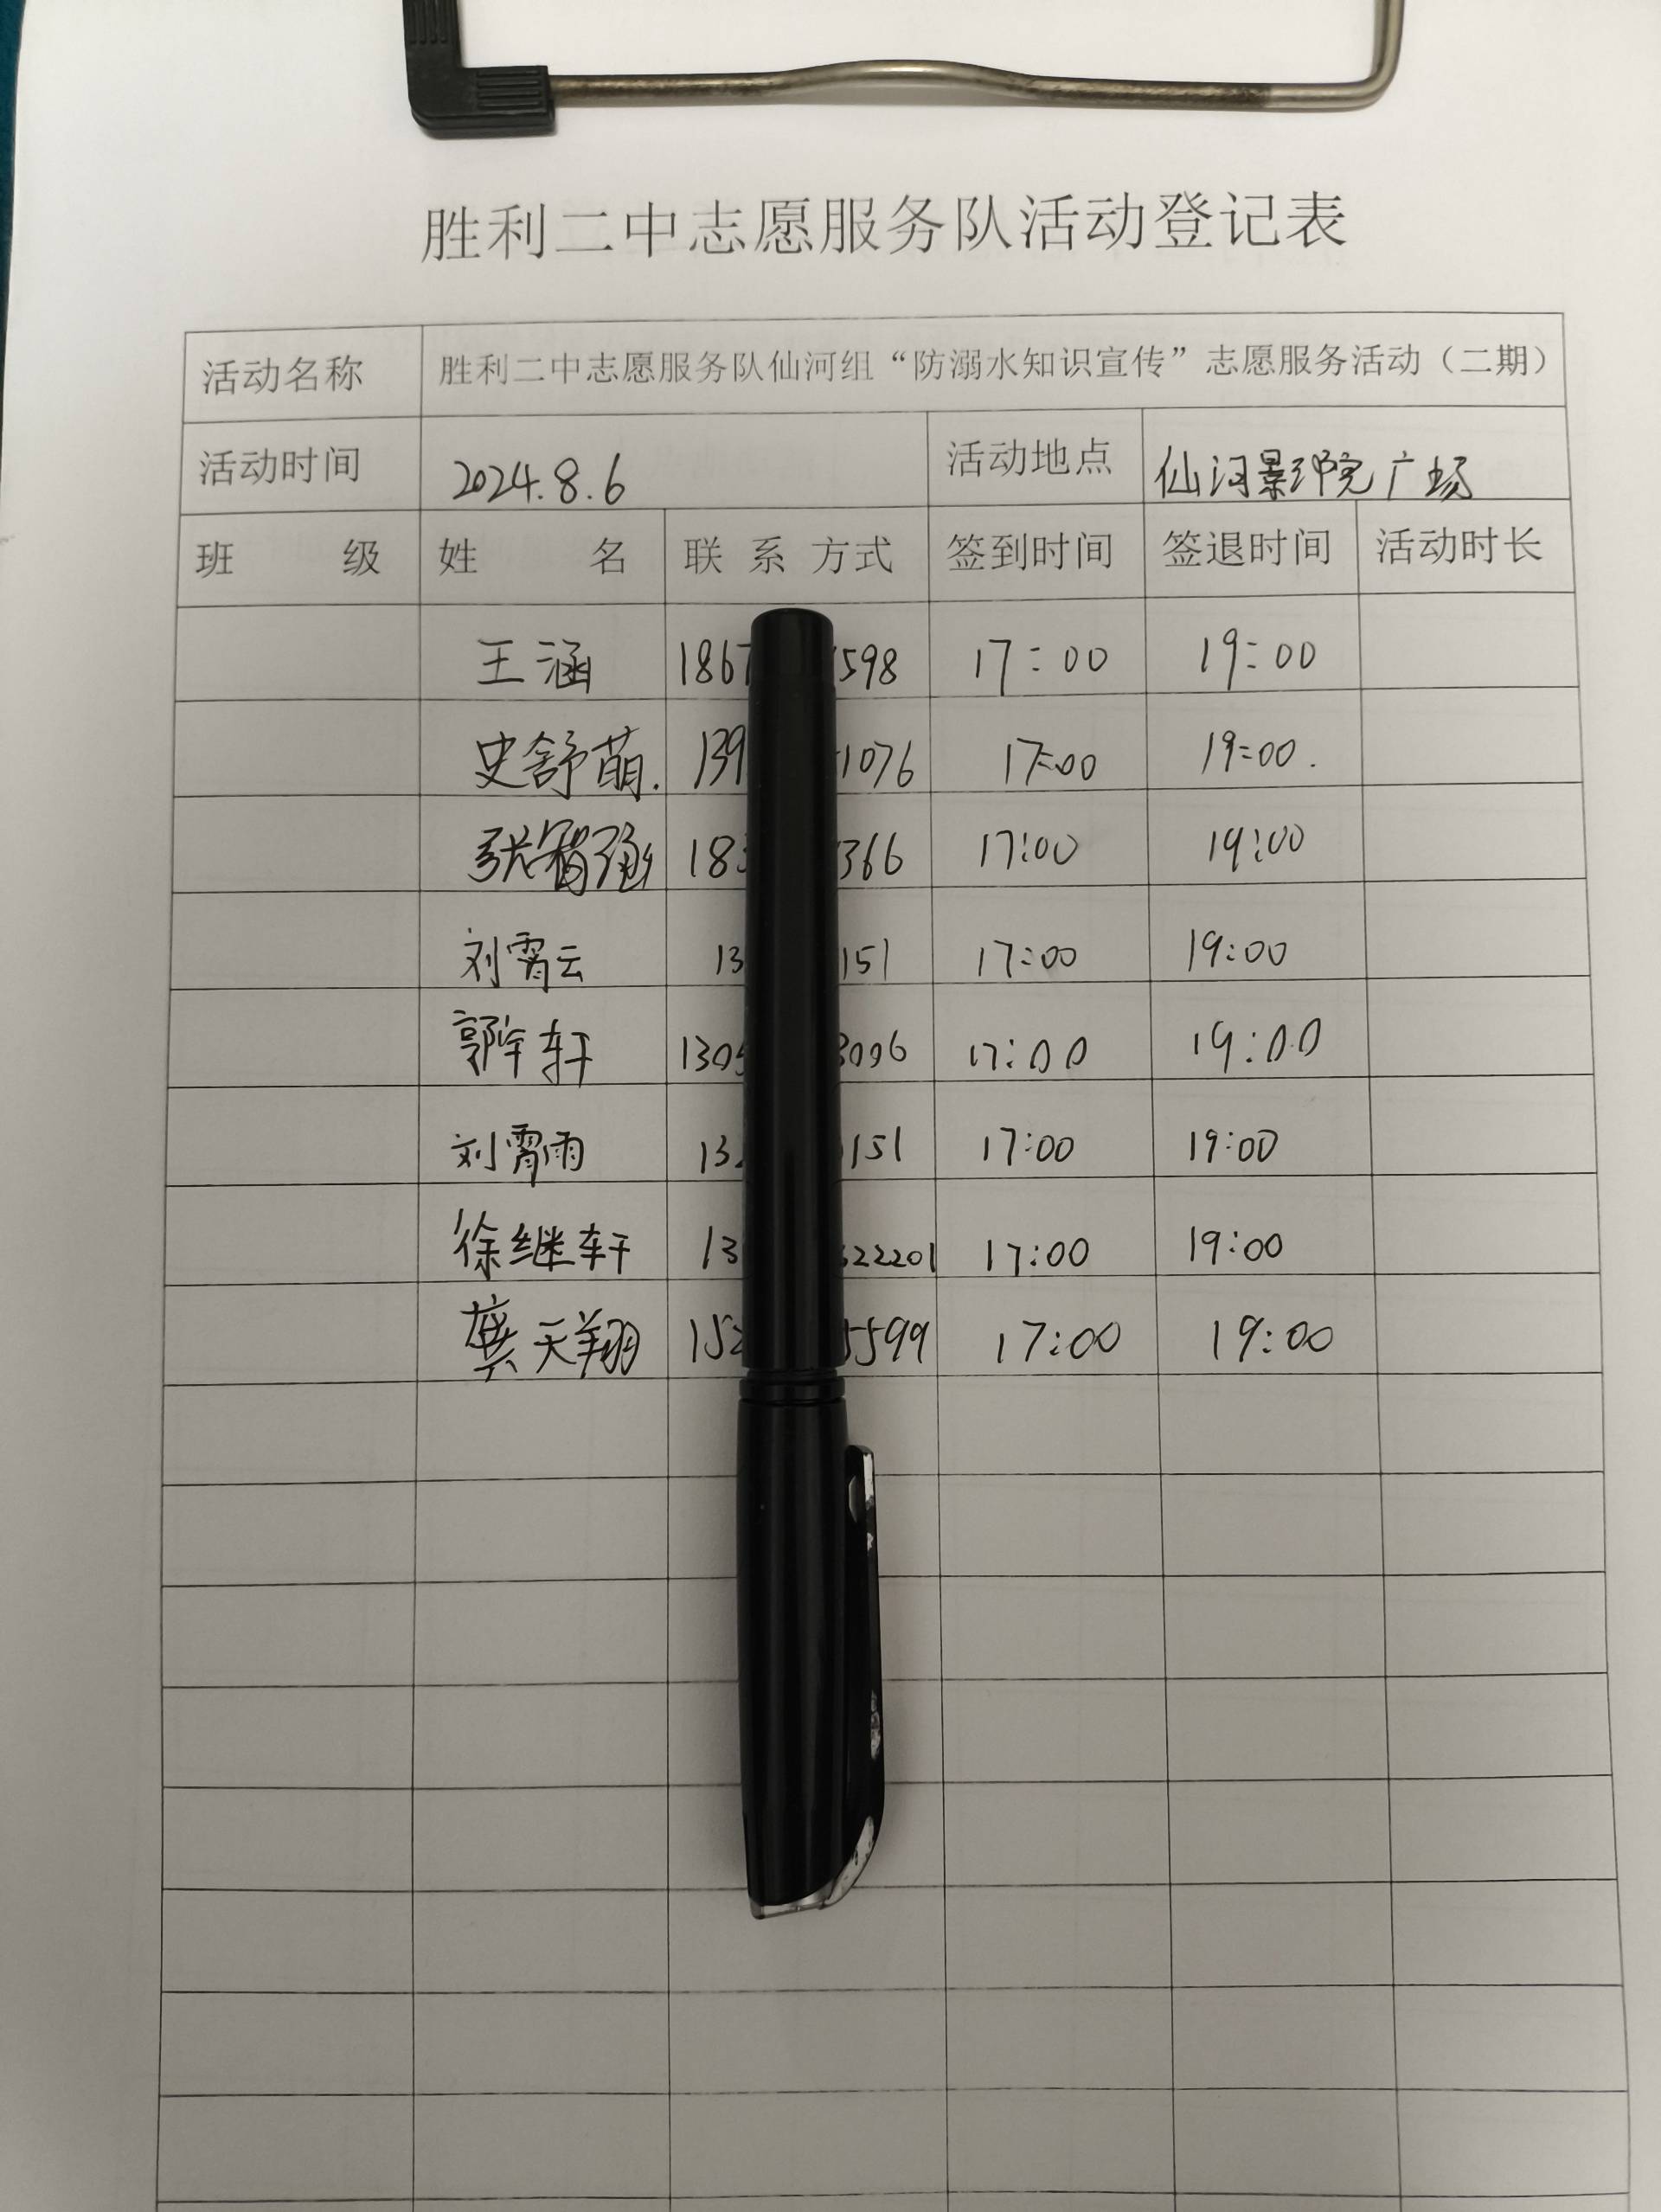 胜利二中志愿服务队活动登记表
活动名称 胜利二中志愿服务队仙河组“防溺水知识宣传”志愿服务活动（二期）
活动时间 2024.8.6 活动地点 仙河影院广场
班 级 姓 名 联 系 方式 签到时间 签退时间 活动时长
王涵 1867 598 17:00 19:00
史舒萌. 139 1076 17:00 19:00.
张智强 183 366 17:00 19:00
刘霄云 13 151 17:00 19:00
郭宇轩 1305 3006 17:00 19:00
刘霄雨 13 151 17:00 19:00
徐继轩 13 22201 17:00 19:00
龚天翔 152 5599 17:00 19:00